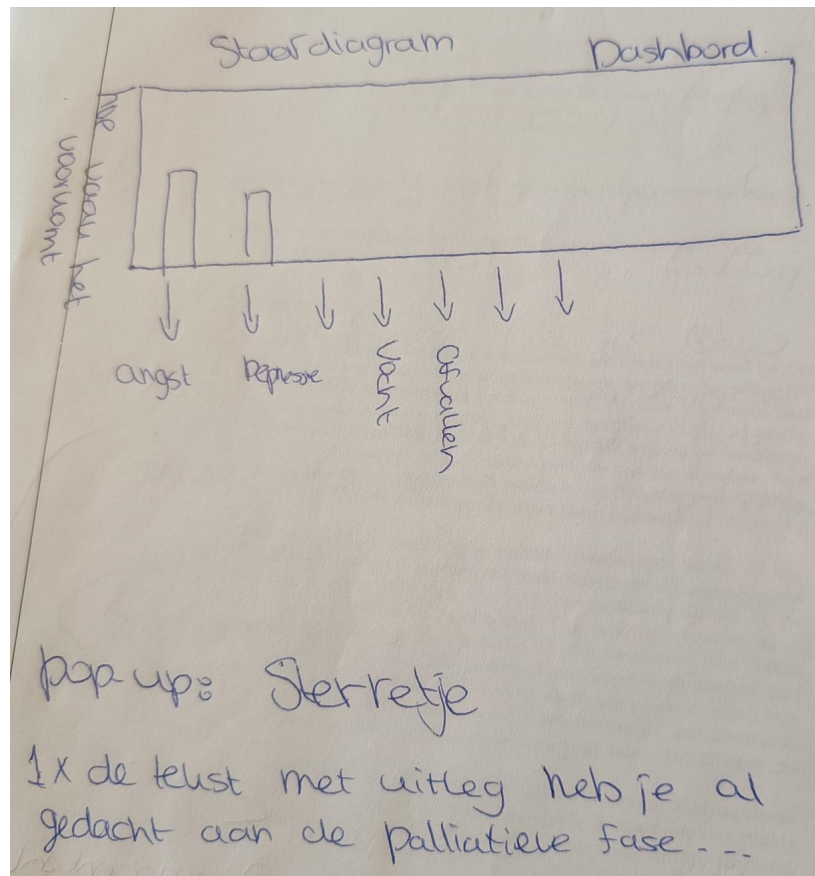 Staafdiagram Dashbord.
hoe vaak het
voorkomt
angst Depressie Vocht afvallen
pop-up: Sterretje
1x de tekst met uitleg heb je al
gedacht aan de palliatieve fase ---